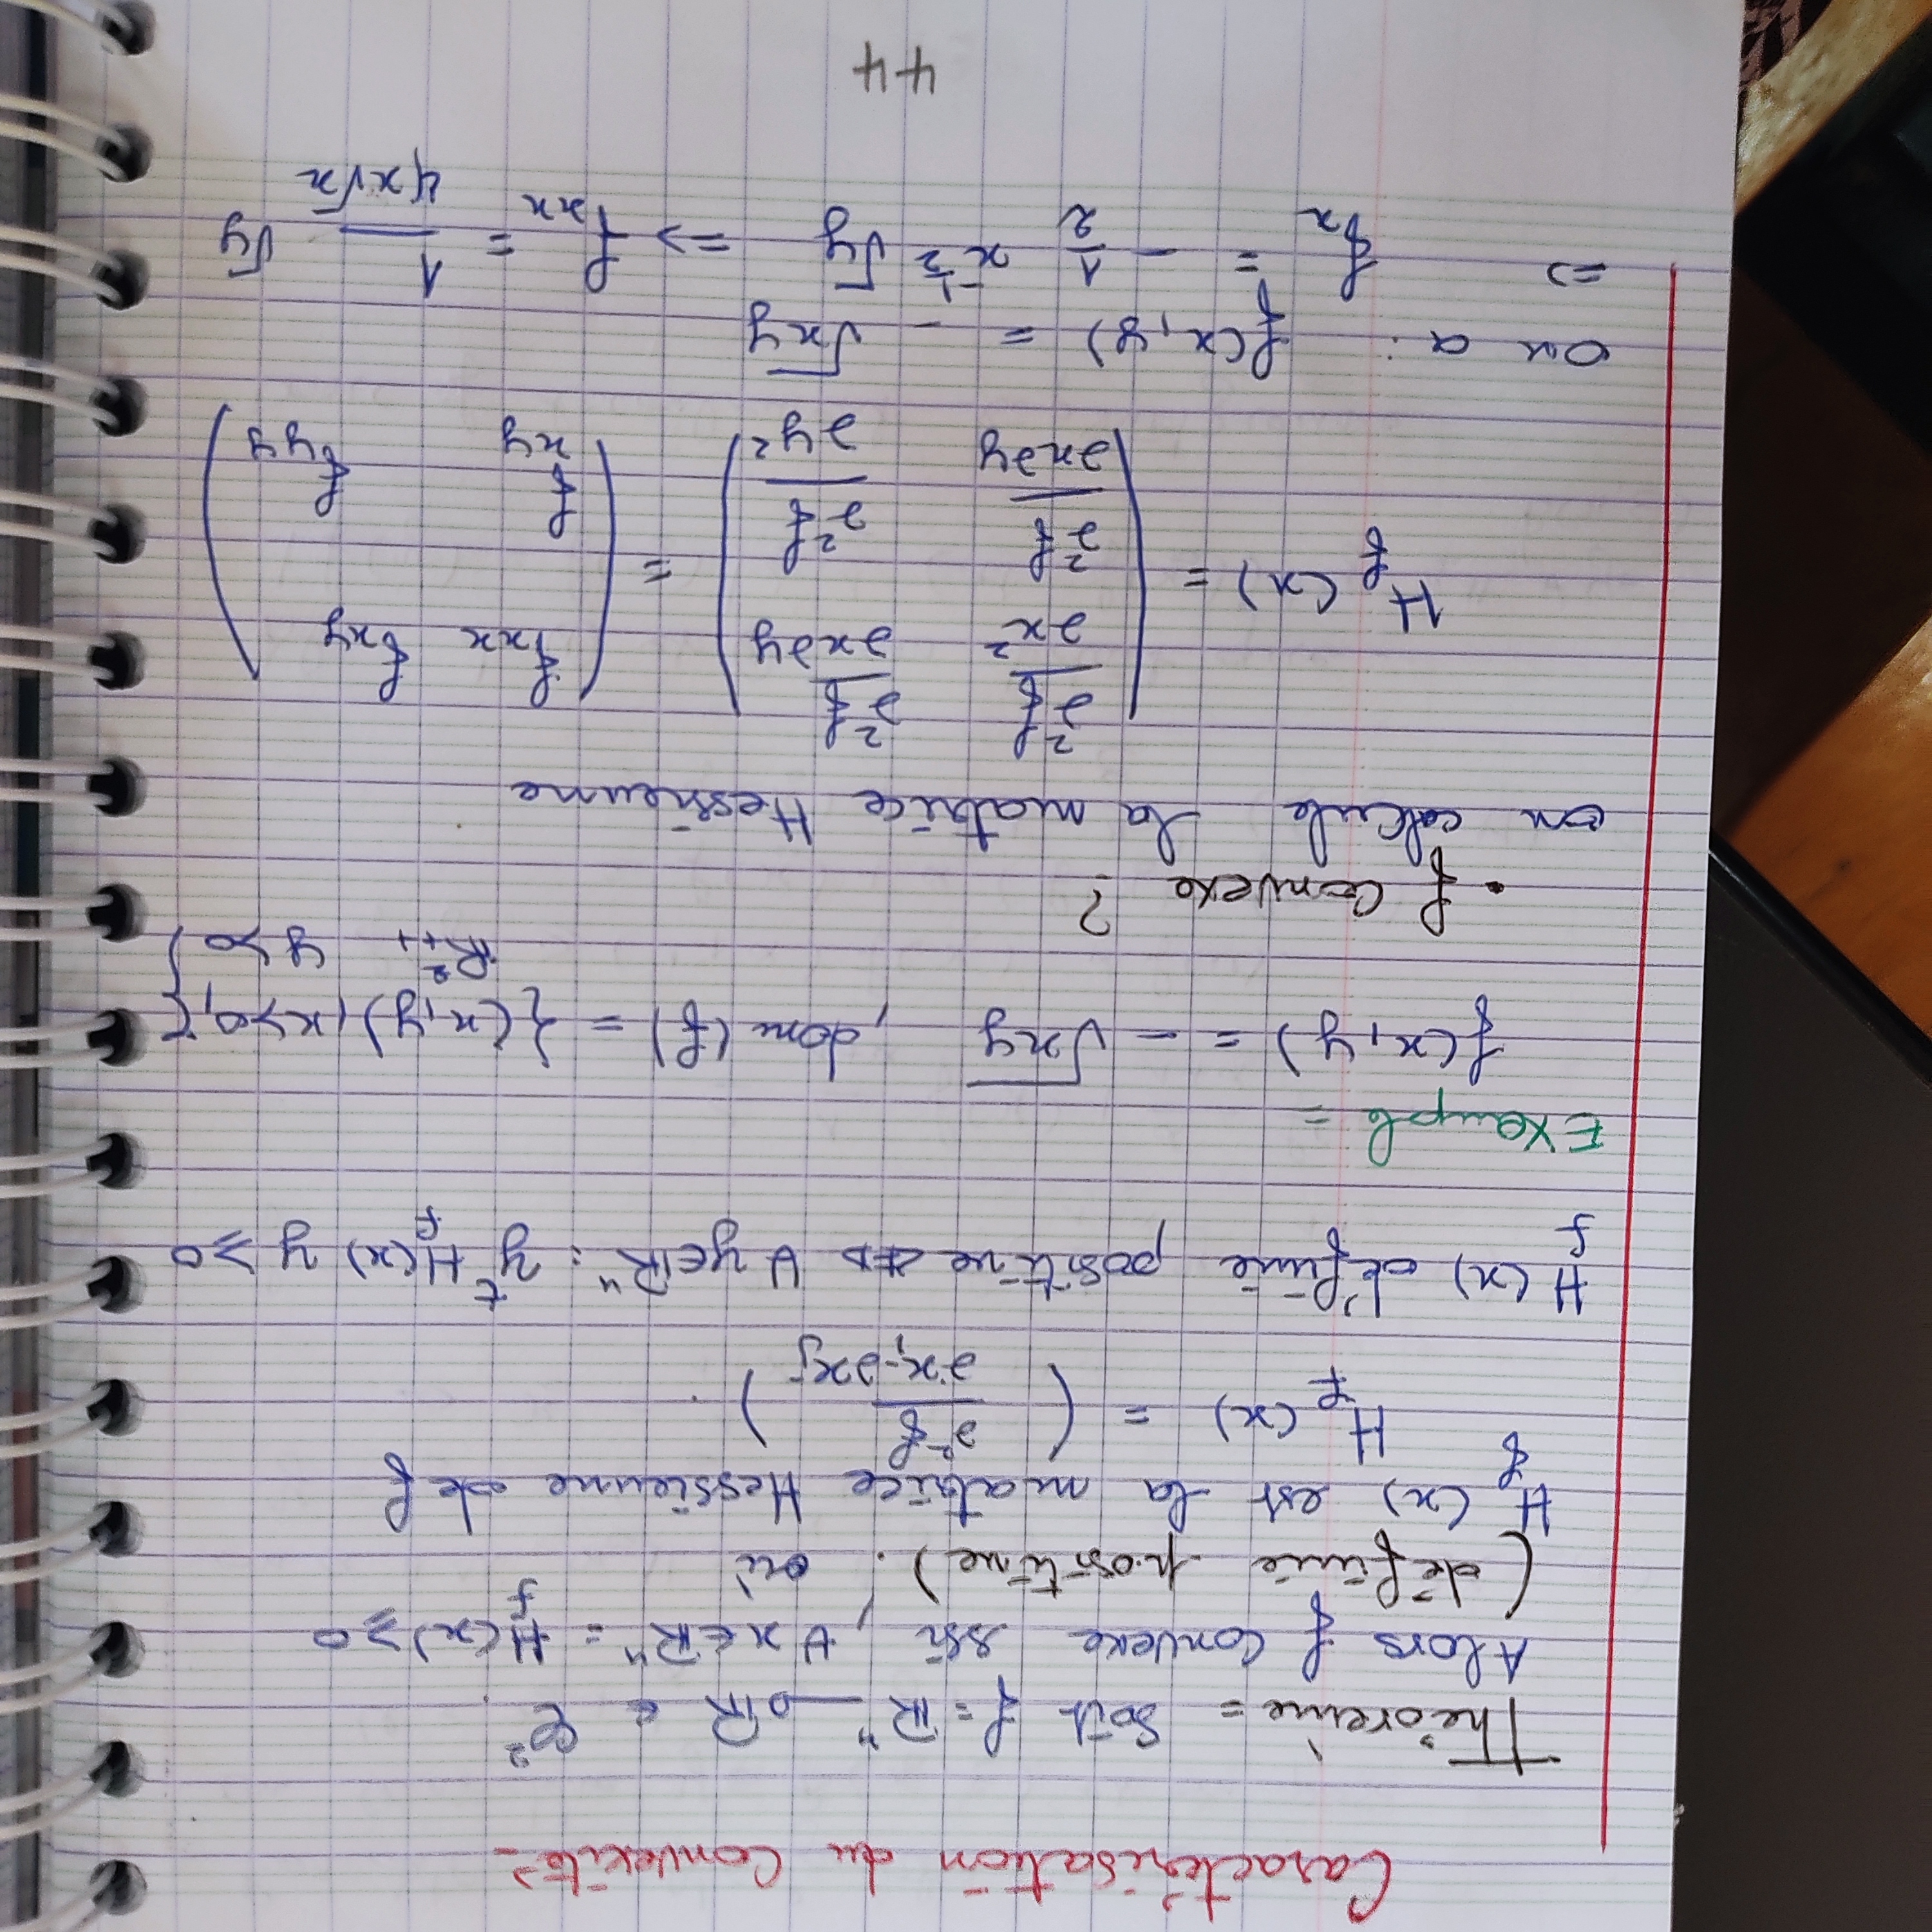 Caractérisation du Convexité =
Théoreme = Soit f = ℝⁿ → ℝ ∈ 𝒞²
Alors f convexe ssi, ∀ x ∈ ℝⁿ = H_f(x) ≥ 0
(définie positive). où
H_f (x) est la matrice Hessienne de f
H_f (x) = ( ∂²f / ∂xᵢ ∂xⱼ ).
H_f (x) définie positive ⟺ ∀ y ∈ ℝⁿ : yᵗ H_f(x) y ≥ 0
EXemple =
f(x,y) = - √xy , dom (f) = {(x,y), x>0,
ℝ²₊₊ y>0}
. f Convexe ?
on calcule la matrice Hessienne
H_f (x) = ( ∂²f/∂x² ∂²f/∂x∂y ; ∂²f/∂x∂y ∂²f/∂y² ) = ( f_xx f_xy ; f_xy f_yy )
on a : f(x,y) = - √xy
=> f_x = - 1/2 x^(-1/2) √y => f_xx = 1/(4x√x) √y
44